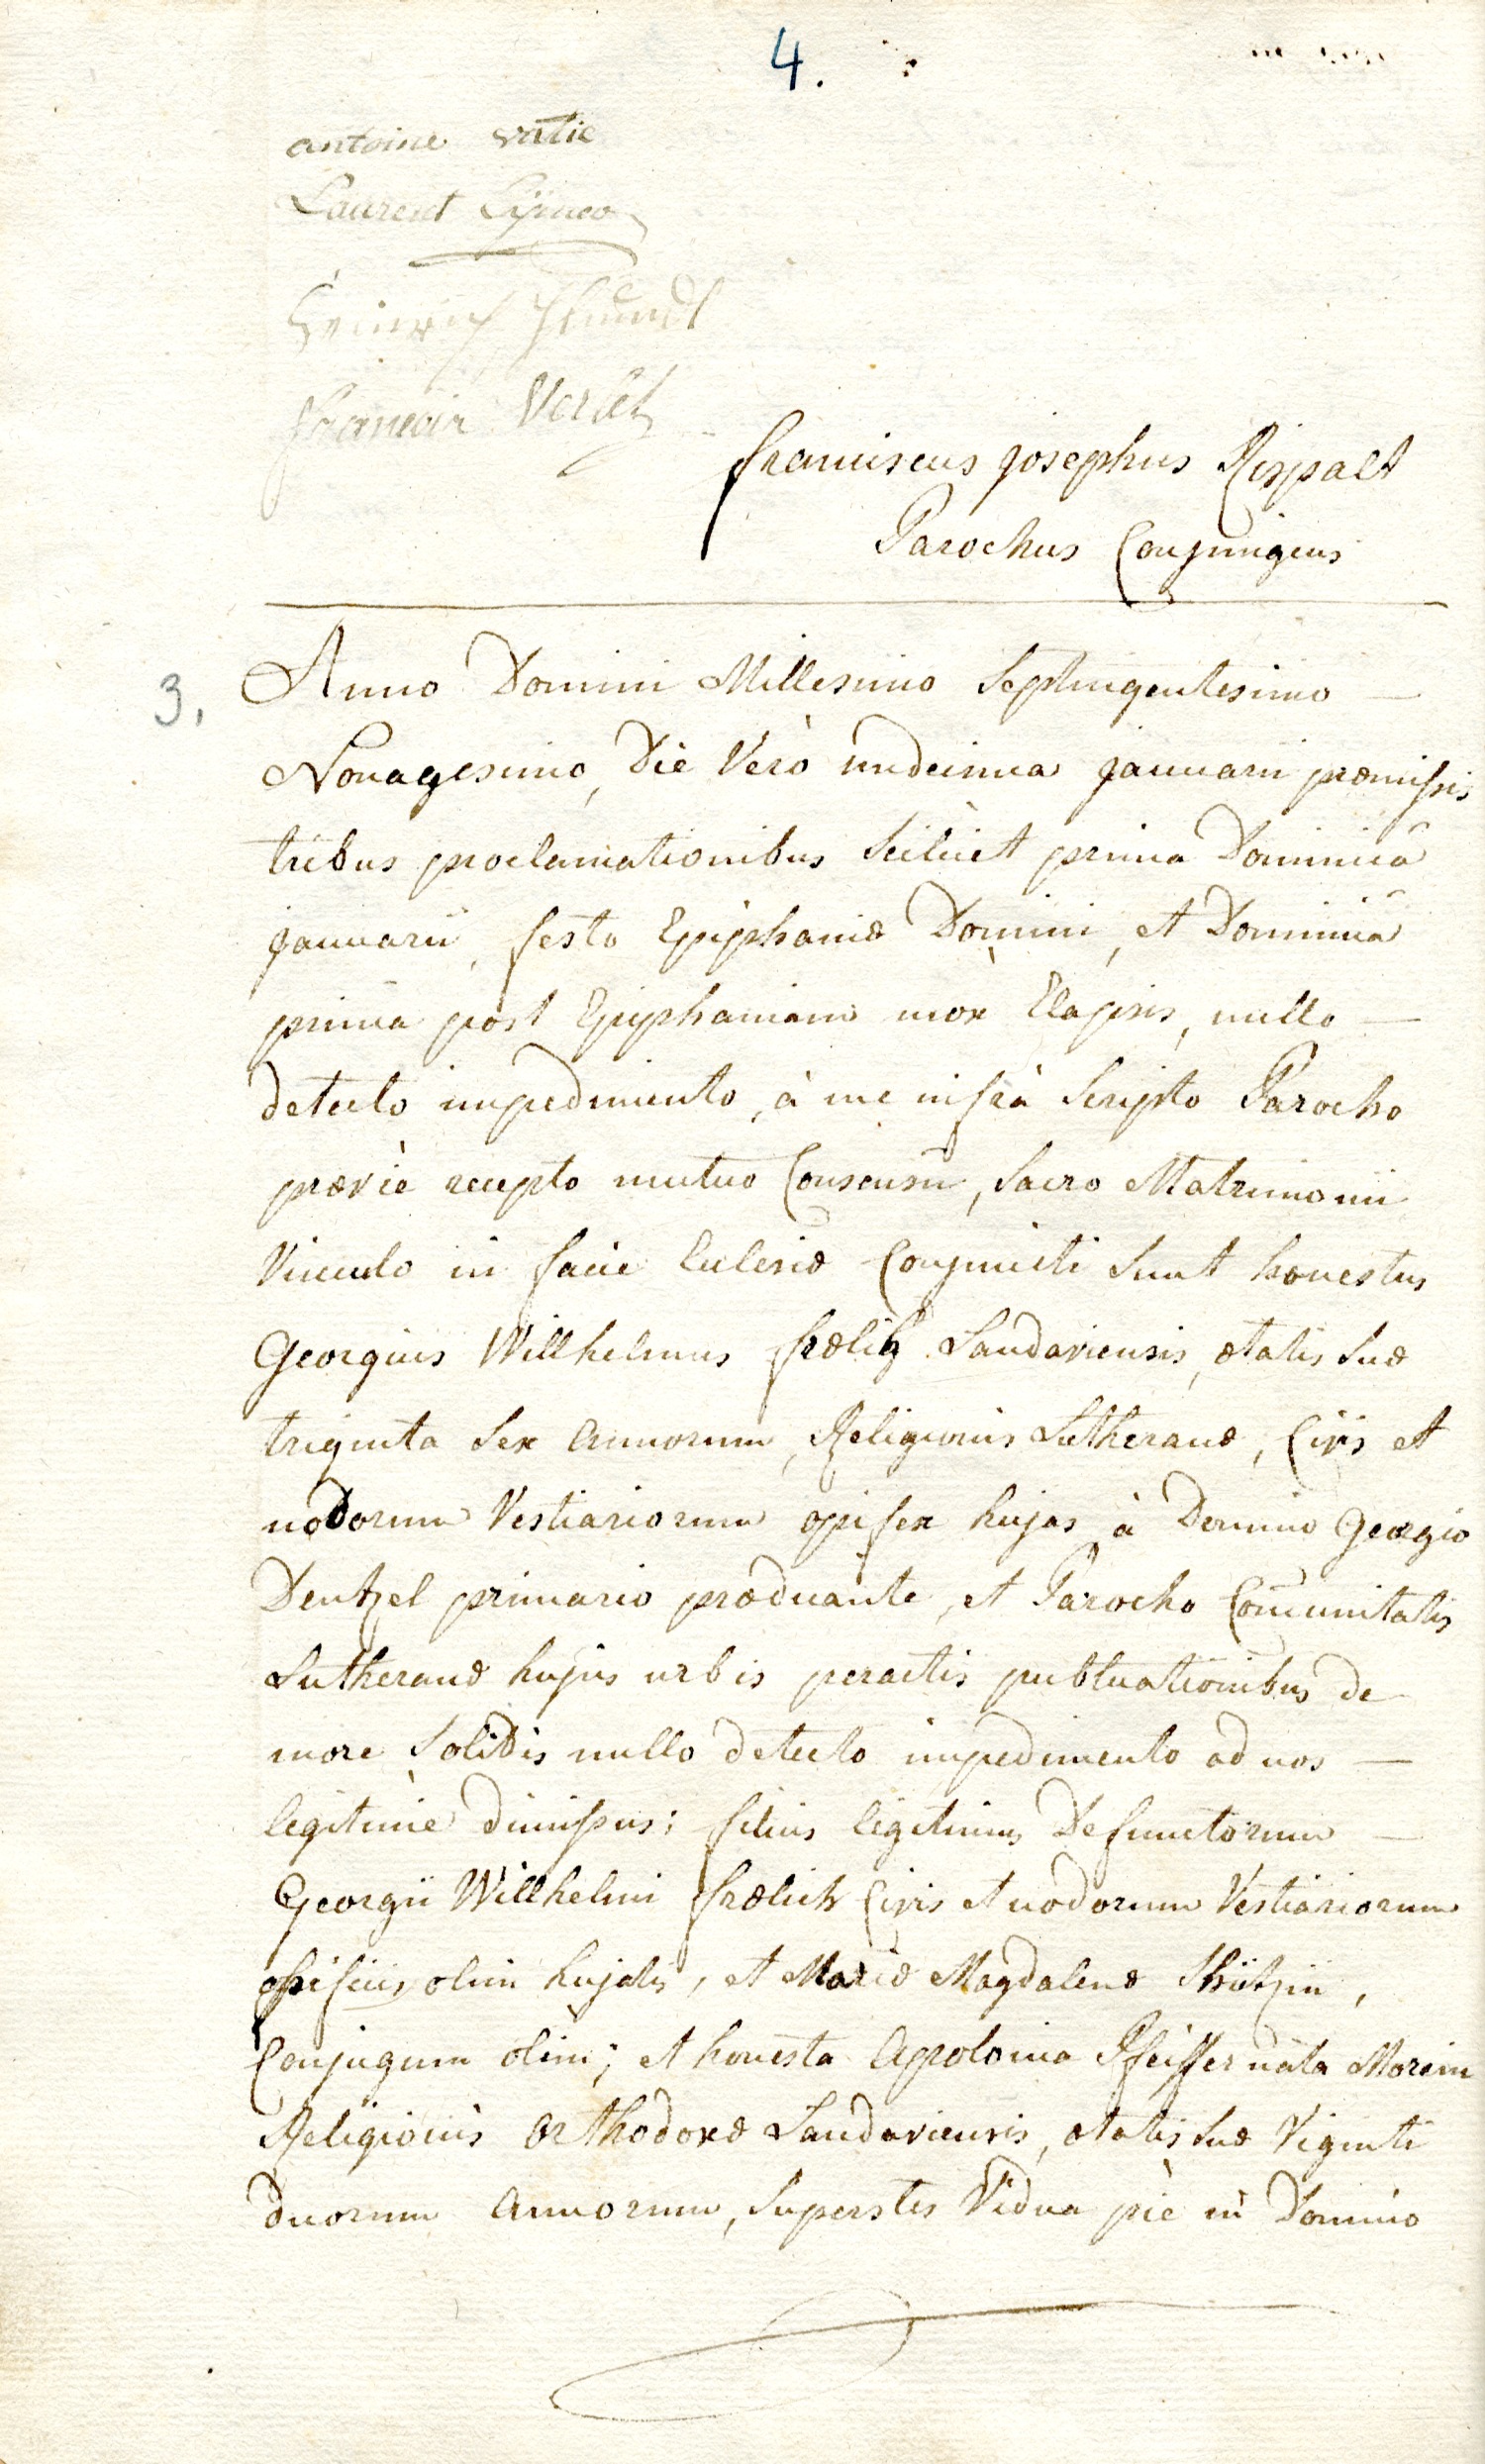 4.
antoine vatie
Laurent
Heinrich
Verlet
franciscus josephus Rispalt
Parochus Conjungens
3. Anno Domini Millesimo Septingentesimo —
Nonagesimo, Die Verò undecima januarii præmissis
tribus proclamationibus Scilicet prima Dominicâ
januarii, festo Epiphaniæ Domini, et Dominicâ
primâ post Epiphaniam mox Elapsis, nullo —
detecto impedimento, à me infrà Scripto Parocho
præviè recepto mutuo Consensu, Sacro Matrimonii
Vinculo in facie Ecclesiæ Conjuncti Sunt honestus
Georgius Willhelmus frælich Landaviensis, ætatis Suæ
triginta Sex annorum, Religionis Lutheranæ, Civis et
nodorum Vestiariorum opifex hujas à Domino Georgio
Dentzel primario prædicante, et Parocho Com̄unitatis
Lutheranæ hujus urbis peractis publicationibus de
more Solitis nullo detecto impedimento ad nos —
legitimè dimissus; filius legitimus Defunctorum —
Georgii Willhelmi frælich Civis et nodorum Vestiariorum
opificis olim hujatis, et Mariæ Magdalenæ Shützin,
Conjugum olim; et honesta Apolonia Pfeiffer nata Morein
Religionis orthodoxæ Landaviensis, ætatis Suæ Viginti
duorum annorum, Superstes Vidua piè in Domino